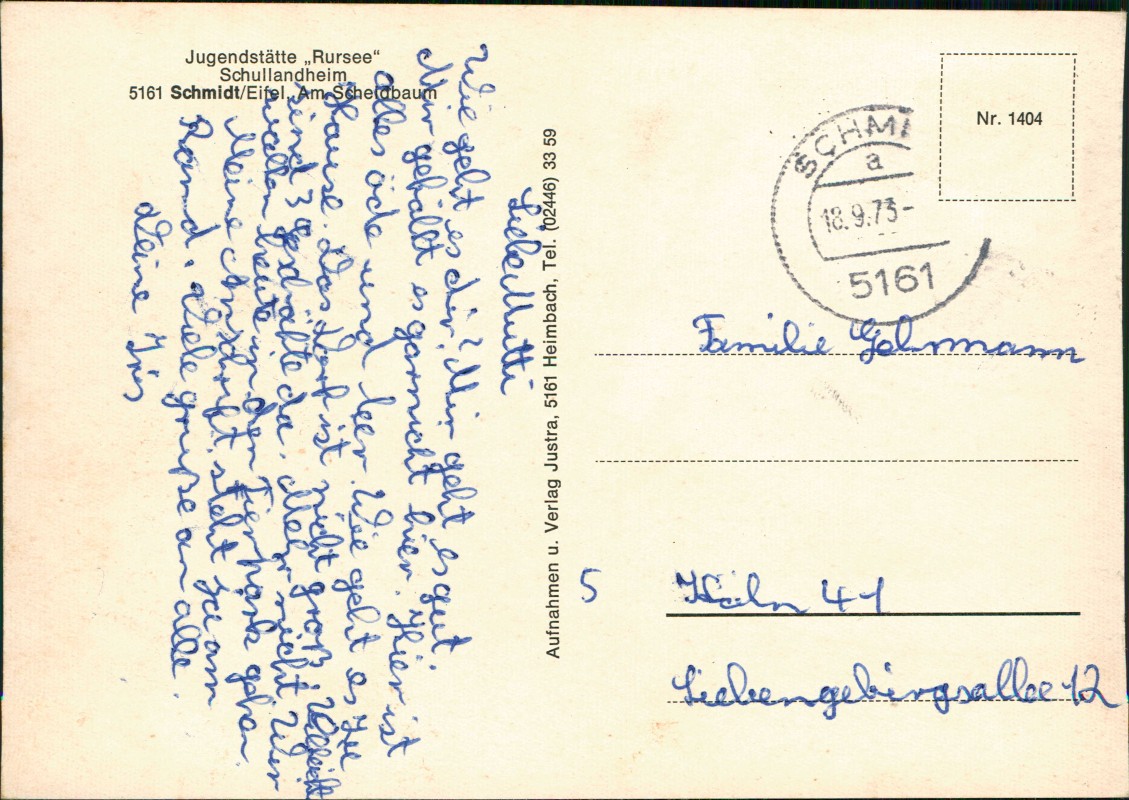 Jugendstätte „Rursee“
Schullandheim
5161 Schmidt/Eifel, Am Scheidbaum
Liebe Mutti
Wie geht es dir? Mir geht es gut.
Mir gefällt es garnicht hier. Hier ist
alles öde und leer. Wie geht es zu
Hause. Das Dorf ist nicht groß. Vielleicht
sind 3 Geschäfte da. Mehr nicht. Wir
wollen heute in den Tierpark gehen.
Meine Anschrift steht ja am
Rand. Viele grüße an alle.
Deine Iris
Aufnahmen u. Verlag Justra, 5161 Heimbach, Tel. (02446) 33 59
Nr. 1404
SCHMI
a
18.9.73-
5161
Familie Gehrmann
5 Köln 41
Siebengebirgsallee 12